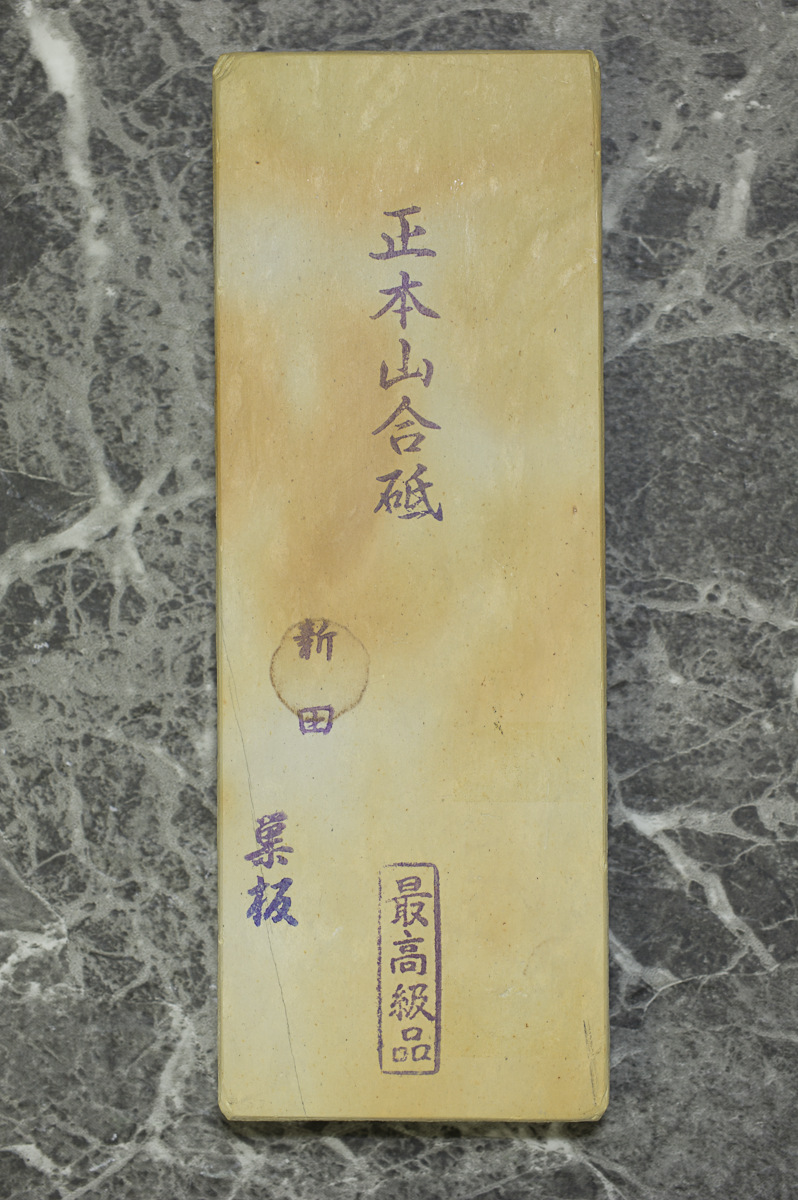 正本山合砥
新田
巣板
最高級品